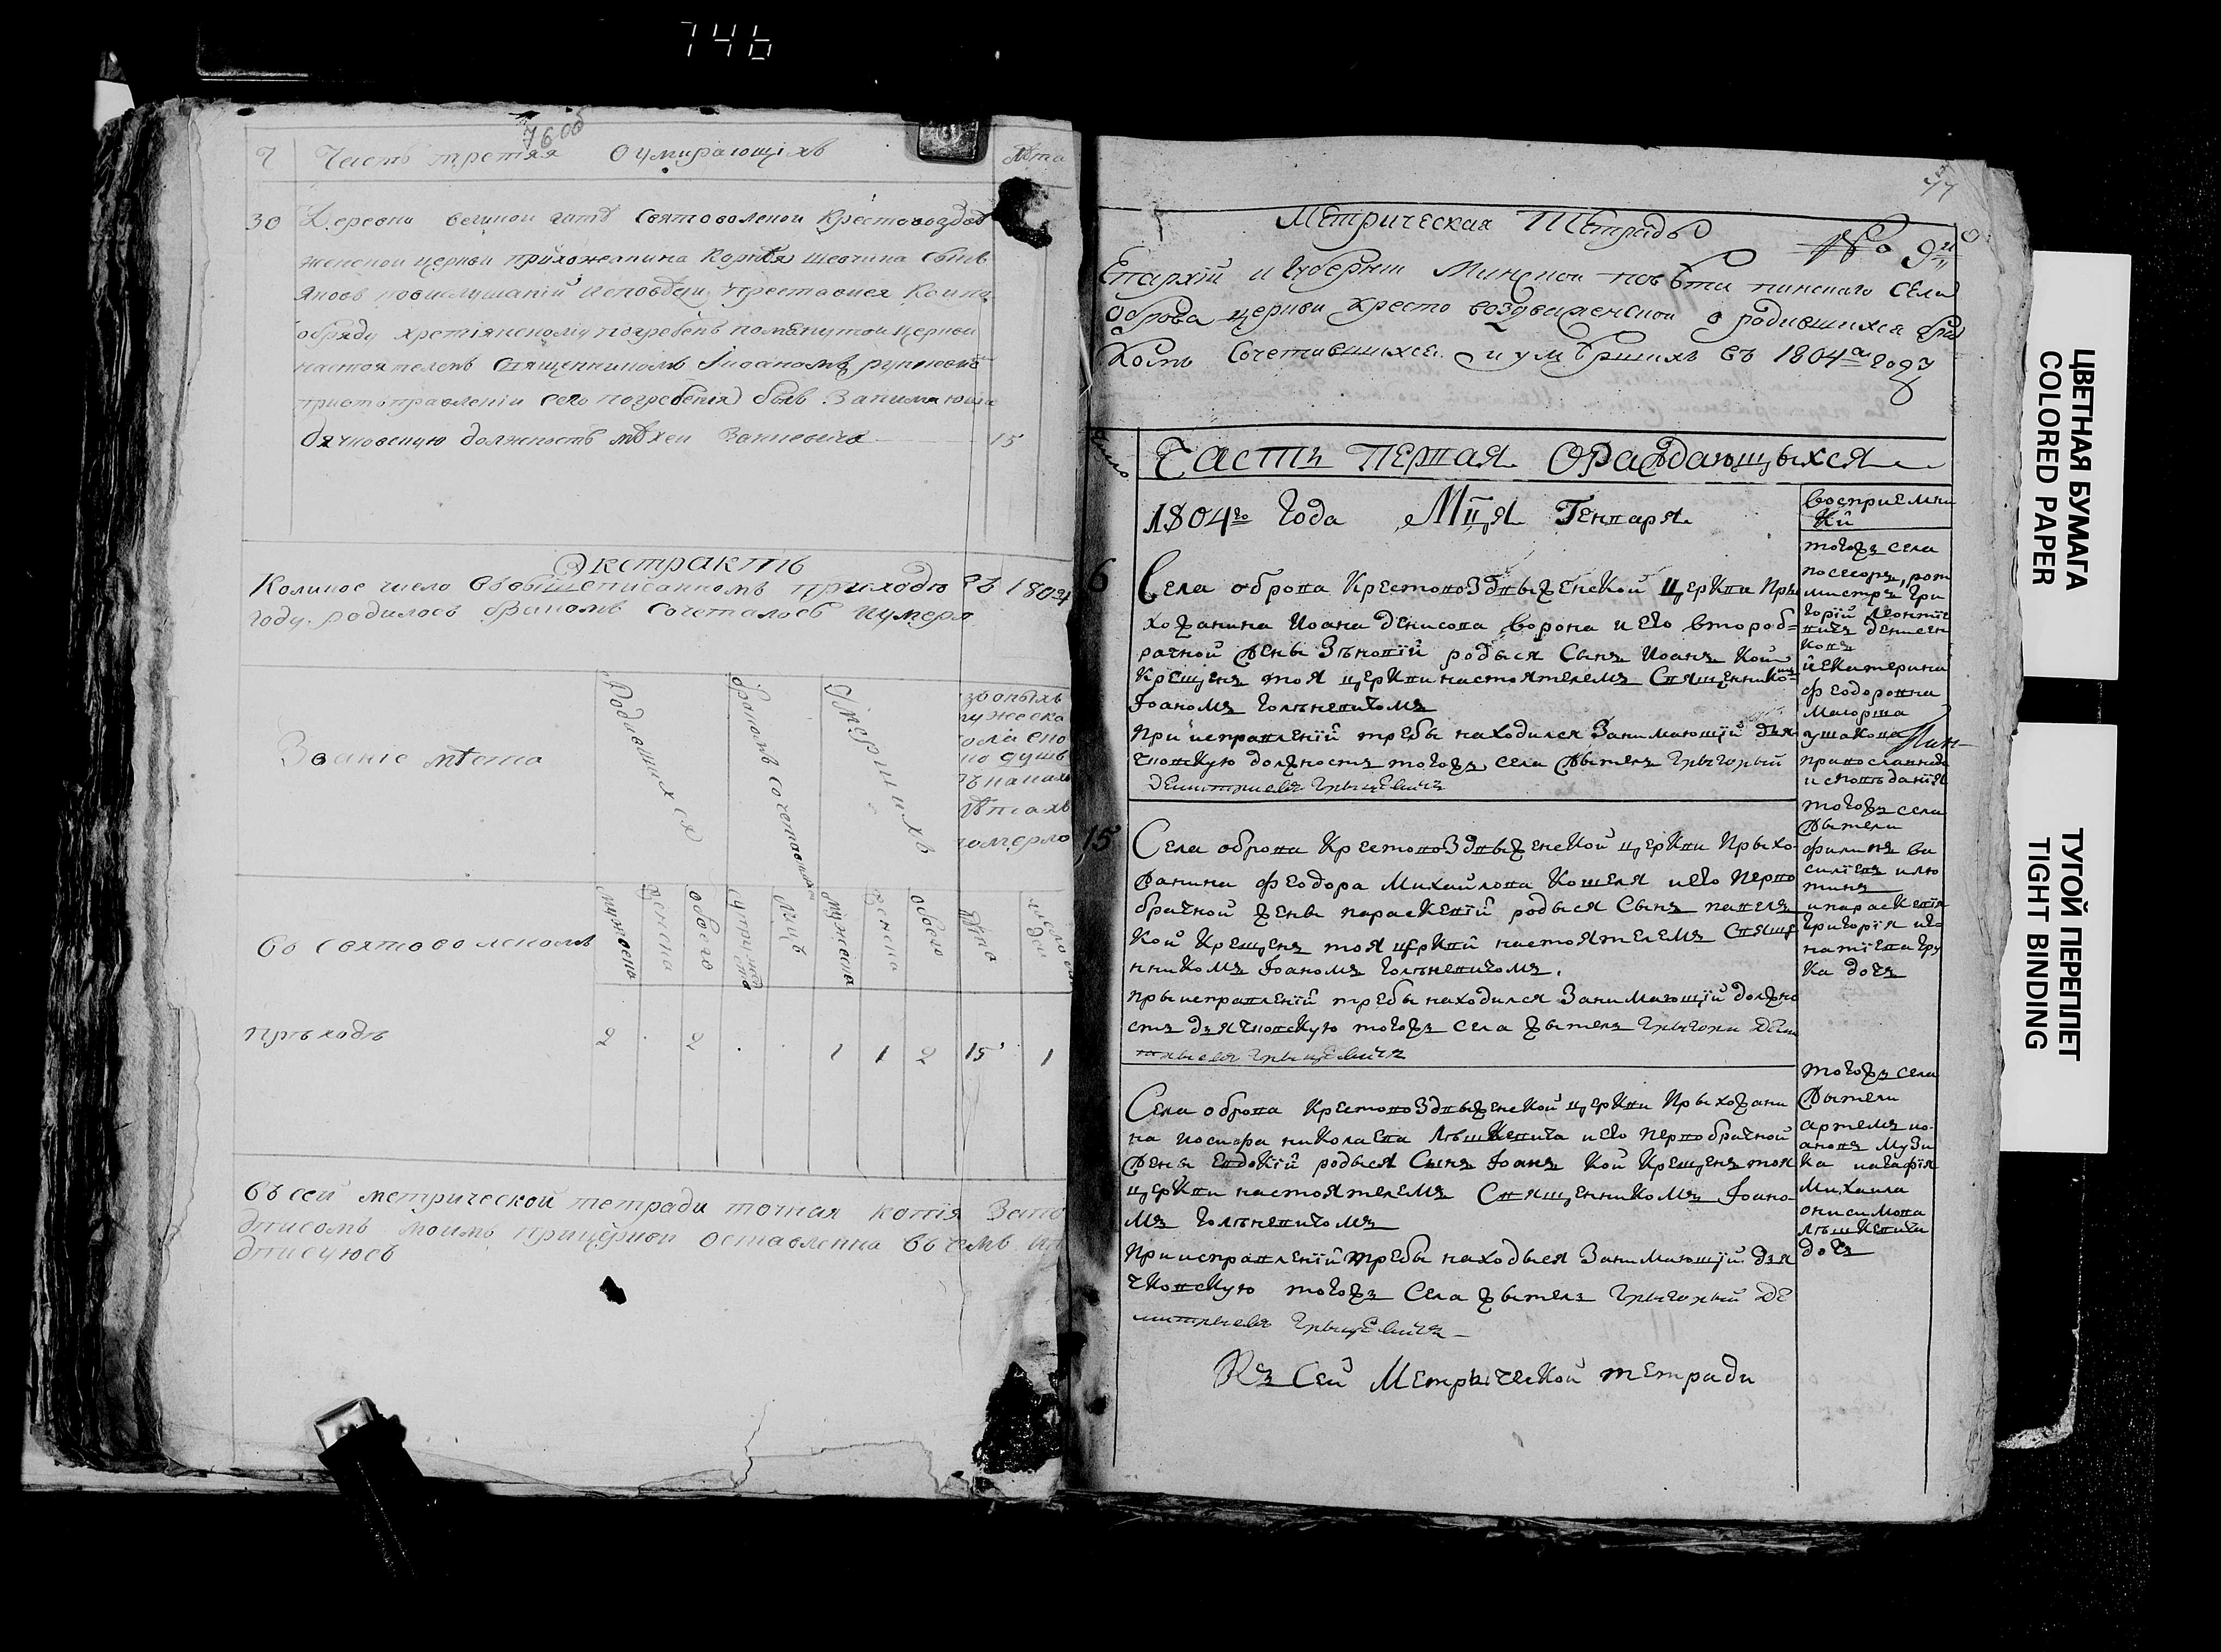 746
76об
Ч Часть третяя О умирающихъ Лѣта
30 Деревни великой гати Святоволской Крестовоздви
женской церкви прихожанина Корнѣя Шевчика Сынъ
Яковъ повыслушаній исповѣди преставися Коипо
обряду христіянскому погребенъ помянутой церкви
настоятелемъ Священникомъ Іоаномъ
приотправленіи сего погребенія былъ Занимающи
дячковскую должность 15
Экстрактъ
Коликое число въвышеписанномъ приходѣ въ 1804
году родилось бракомъ Сочеталось иумерло
Званіе мѣста
Родившихся
бракомъ сочетавших
Умершихъ
лѣтахъ
померло
Во Святоволскомъ
мужеска
женска
обоего
супружества
Лицъ
мужеска
женска
обоего
Лѣта
приходѣ 2 . 2 . . 1 1 2 15 1
въ сей метрической тетради точная копія Запо
дписомъ моимъ прицеркви оставленна въ чемъ ип
дписуюсь
77
Метрическая Тетрадь
No 9й
Епархіи и Губерніи Минской повѣта пинскаго Села
Оброва церкви кресто воздвиженской о родившихся бра
Косты Сочетавшихся и умѣршихъ въ 1804м году
Число
Часть Первая О Раждающыхся
1804го Года Мця Генваря
восприемни
Ки
6
Села оброва КрестовоЗдвыженской Церкви При
хожанина Иоана денисова ворона и его второб=
рачной жены Зѣновїй родыся Сынъ Иоанъ Кой
Крещенъ тоя церкви настоятелемъ Священико
Іоаномъ Голѣневичомъ
При исправленїй требы находился Занимающїй дъя
чковскую должность тогожъ села жытель Грыгорый
Демитриевъ Грыцевичъ
тогожъ села
посесоръ, рот
мистръ Гри
горїй Леонтїе
вичъ денисен
ковъ
й екатерина
феодоровна
маиорша
ушакова
православнаго
исповѣданїя
15
Села оброва КрестовоЗдвыженской церкви Прыхо-
жанина феодора Михайлова Кошеля и его перво
брачной жены параскевїй родыся Сынъ павелъ
Кой Крещенъ тоя церквй настоятелемъ Свяще
нникомъ Іоаномъ Голѣневичомъ.
прыисправленїй требы находился Занимающїй должно
сть дъячковскую тогожъ села жытель Грыгоры Деми
трыевъ Грыцевичъ
тогожъ села
жытели
филипъ ва
силїевъ илю
тинъ
и параскевїя
григорїя иг
натїева гру
ка дочъ
Села оброва КрестовоЗдвыженской церкви Прыхожани
на иосифа николаева Лѣшкевича и его первобрачной
жены Евдокїй родыся Сынъ Іоанъ Кой Крещенъ тоя
церкви настоятелемъ Священникомъ Іоано-
мъ Голѣневичомъ
При исправленїй требы находыся Занимающїй дъя
чковскую тогожъ Села жытель Грыгорый Де
митрыевъ Грыцевичъ
тогожъ села
жытели
артемъ ио-
ановъ музы
ка иагафїя
Михаила
онисимова
лѣшкевича
дочъ
Къ Сей Метрыческой тетради
ЦВЕТНАЯ БУМАГА
COLORED PAPER
ТУГОЙ ПЕРЕПЛЕТ
TIGHT BINDING